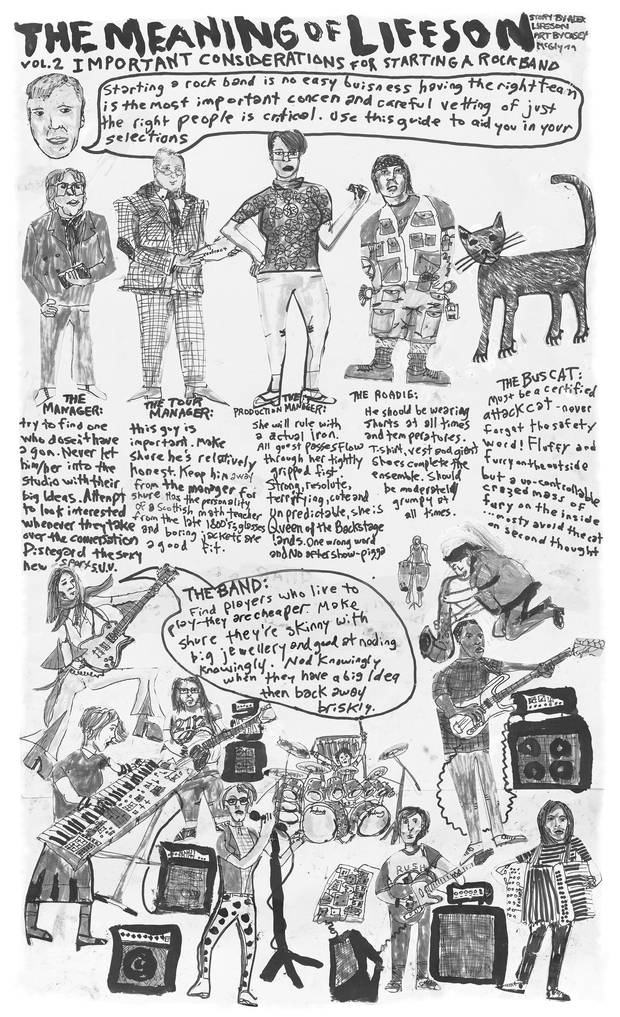 THE MEANING OF LIFESON
STORY BY ALEX
LIFESON
ART BY CASEY
McGlynn
VOL.2 IMPORTANT CONSIDERATIONS FOR STARTING A ROCK BAND
Starting a rock band is no easy buisness having the right team
is the most important concern and careful vetting of just
the right people is critical. Use this guide to aid you in your
selections
THE
MANAGER:
try to find one
who doseit have
a gun. Never let
him/her into the
studio with their
big Ideas. Attempt
to look interested
whenever they take
over the conversation
Disregard the sexy
new sports S.U.V.
THE TOUR
MANAGER:
this guy is
important. Make
shure he's relatively
honest. Keep him away
from the manager for
shure has the personality
of a Scottish math teacher
from the late 1800's, glasses
and boring jackets are
a good fit.
THE
PRODUCTION MANAGER:
She will rule with
a actual iron.
All guest passes flow
through her tightly
gripped fist.
Strong, resolute,
terrifying, cute and
un predictable, she is
Queen of the Backstage
lands. One wrong word
and No aftershow-pizza
THE ROADIE:
He should be wearing
shorts at all times
and temperatures.
T-shirt, vest and giant
Shoes complete the
ensemble. Should
be moderately
grumpy at
all times.
THE BUS CAT:
Must be a certified
attack cat - never
forget the safety
word! Fluffy and
furry on the outside
but a un-controllable
crazed mass of
fury on the inside
...mostly avoid the cat
on second thought
THE BAND:
Find players who live to
play-they are cheaper. Make
shure they're skinny with
big jewellery and good at noding
knowingly. Nod Knowingly
when they have a big Idea
then back away
briskly.
2112
RUSH